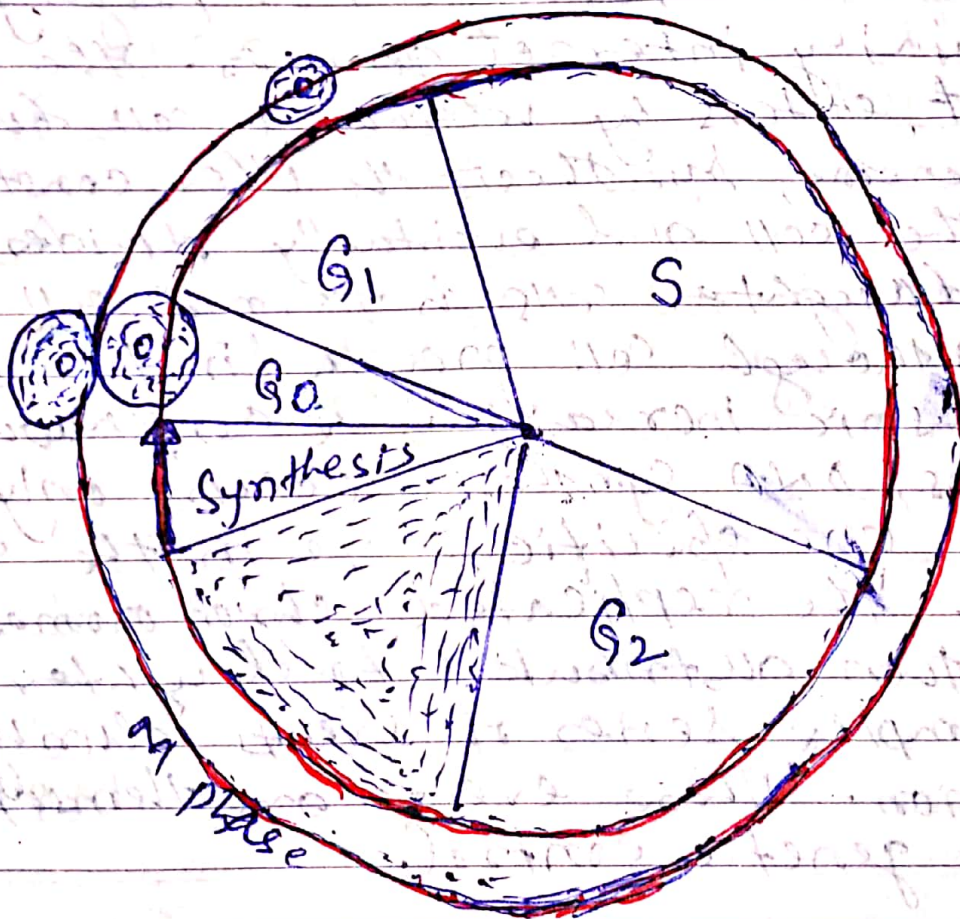 G1
S
G0
Synthesis
G2
M phase